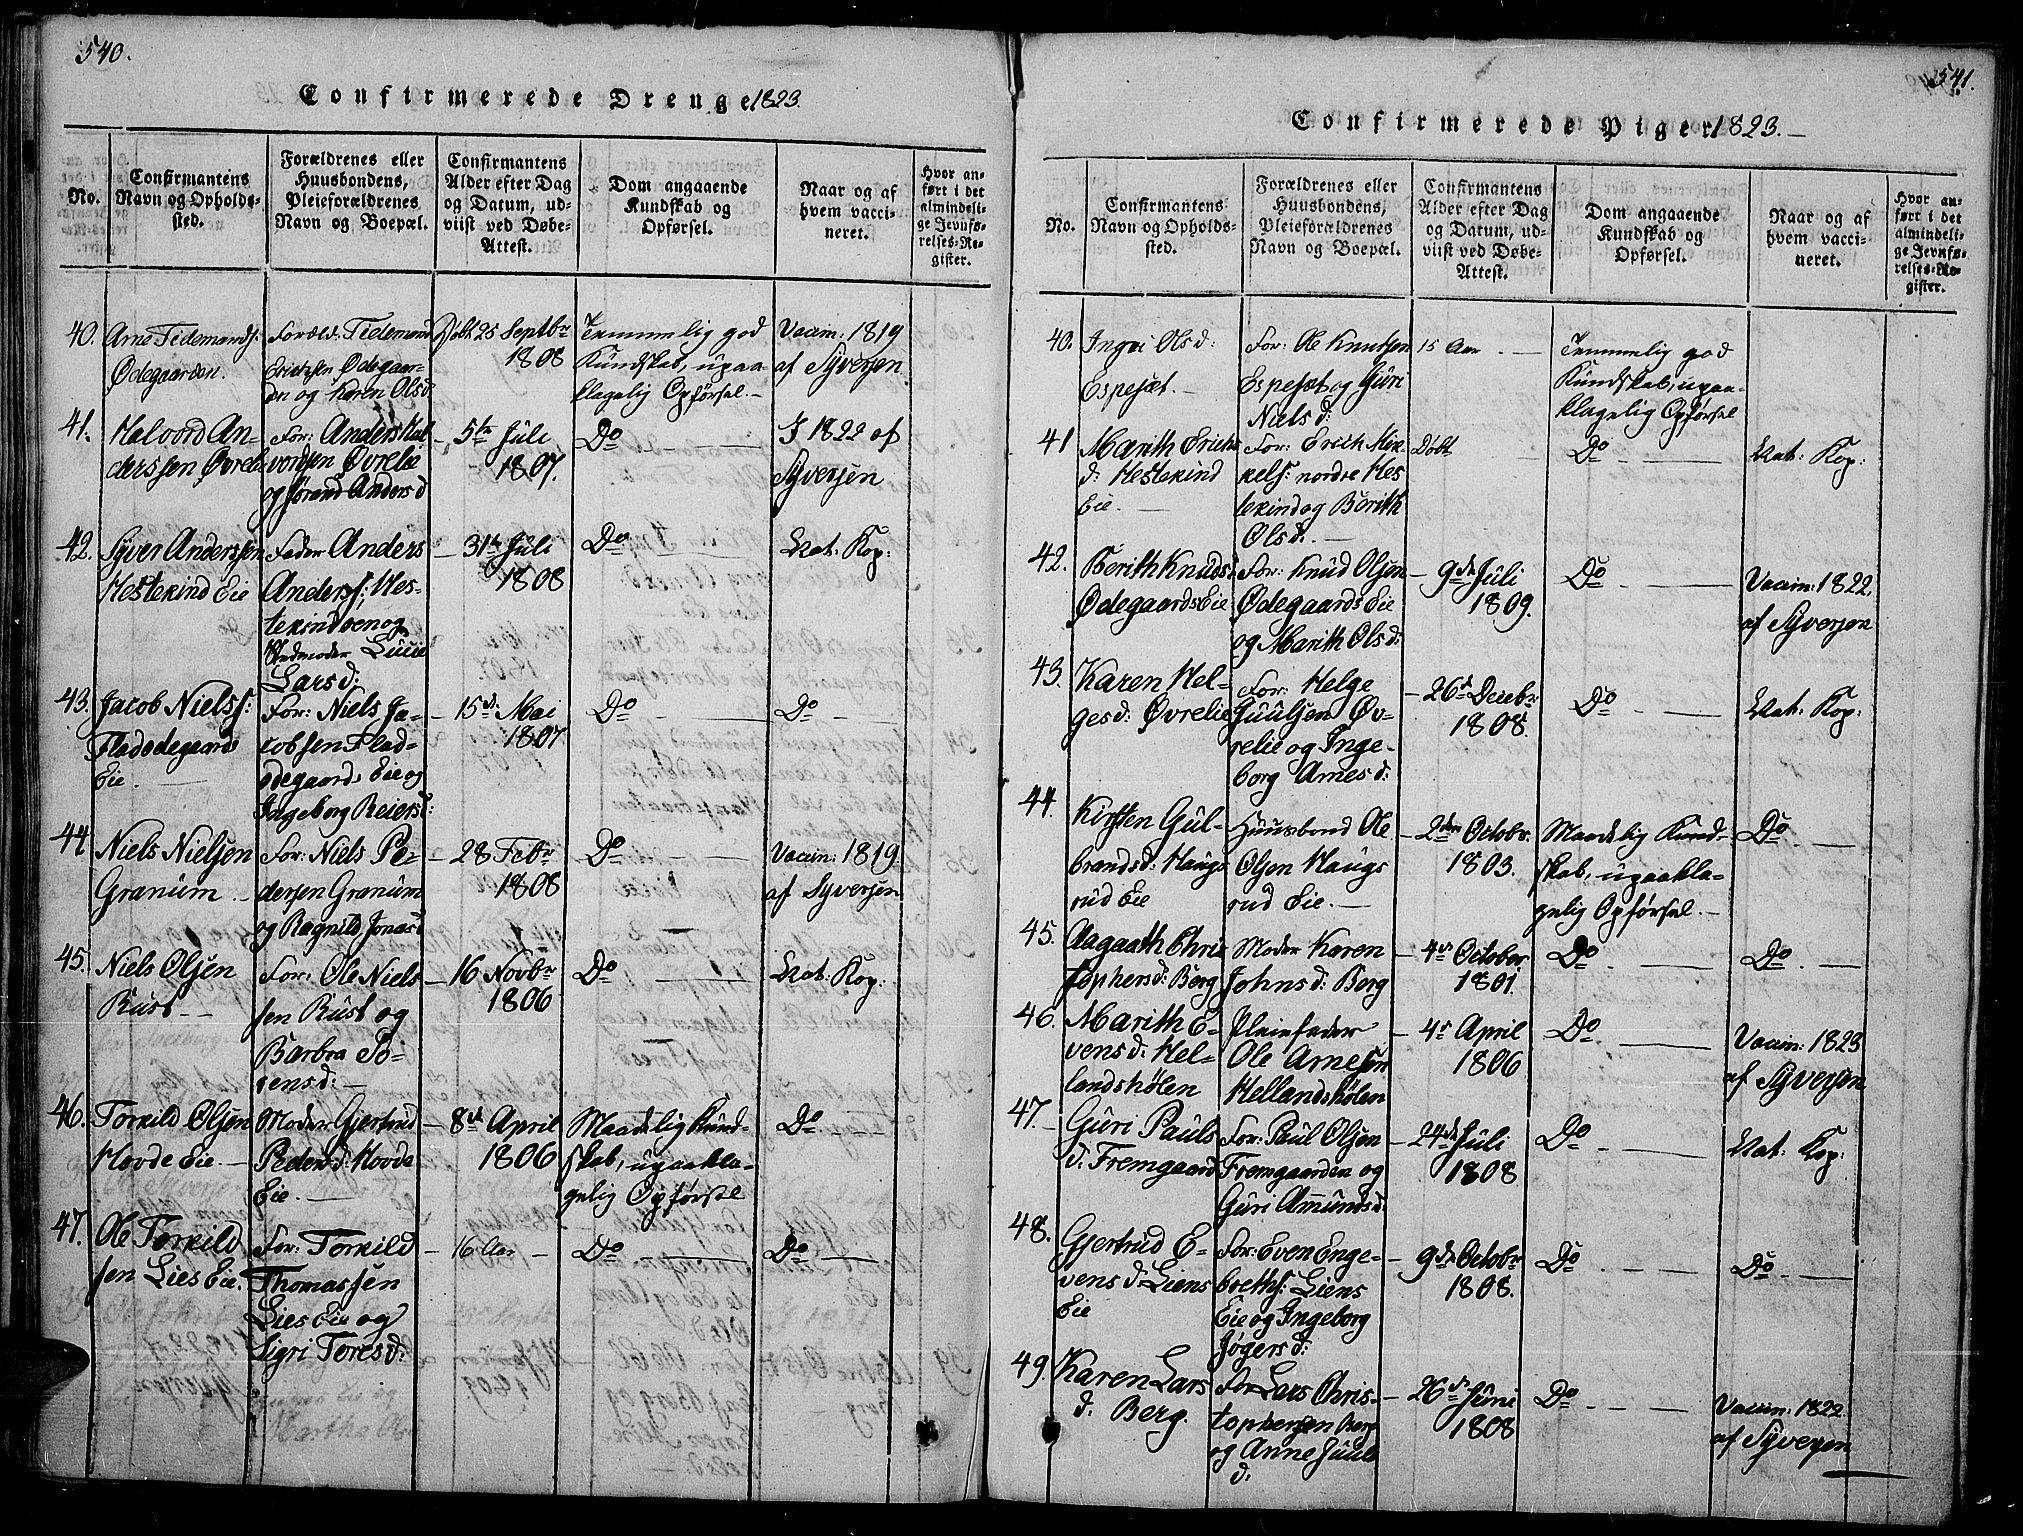 540.
Confirmerede Drenge 1823.
No.
Confirmantens
Navn og Opholds-
sted.
Forældrenes eller
Huusbondens,
Pleieforældrenes
Navn og Boepæl.
Confirmantens
Alder efter Dag
og Datum, ud-
viist ved Døbe-
Attest.
Dom angaaende
Kundskab og
Opførsel.
Naar og af
hvem vacci-
neret.
Hvor an-
ført i det
almindeli-
ge Jevnfø-
relses-Re-
gister.
40.
Arne Tidemands:
Ødegaarden.
Foræld: Tidemand
Erichsen Ødegaar-
den og Karen Olsd
Døbt 25 Septbr
1808
Temmelig god
Kundskab, upaa-
klagelig Opførsel.-
Vaccin: 1819
af Syversen
41.
Halvord An-
derssen Øvrelie
For: Anders Hal
vordsen Øvrelie
og Jørand Andersd
- 5te Juli
1807.
Do
I 1822 af
Syversen
42.
Syver Anderssen
Hestekind Eie
Fader Anders
Anders: Hes-
tekindoen og
Stedmoder Lucie
Larsd:
- 31te Juli
1808
Do
Nat: Kop:
43.
Jacob Niels:
Fladødegaards
Eie.
For: Niels Ja-
cobsen Flad-
ødegaards Eie og
Ingeborg Reiersd:
- 15de Mai
1807
Do
Do
44
Niels Nielsen
Granum.-
For: Niels Pe-
dersen Granum
og Ragnild Jonasd
- 28 Febr
1808
Do
Vaccin: 1819.
af Syversen
45.
Niels Olsen
Rust--
For: Ole Niels
sen Rust og
Barbra Sø-
rensd:-
- 16 Novbr
1806
Do
Nat: Kop:
46.
Torkild Olsen
Hovde Eie.-
Moder Gjertrud
Pedersd: Hovde
Eie.-
- 8de April
1806
Maadelig Kund-
skab, upaakla-
gelig Opførsel
Do
47.
Ole Torkild
sen Lies Eie.
For: Torkild
Thomassen
Lies Eie og
Sigri Toresd:
- 16 Aar -
Do
Do
541.
Confirmerede Piger 1823.-
No.
Confirmantens
Navn og Opholds-
sted.
Forældrenes eller
Huusbondens,
Pleieforældrenes
Navn og Boepæl.
Confirmantens
Alder efter Dag
og Datum, ud-
viist ved Døbe-
Attest.
Dom angaaende
Kundskab og
Opførsel.
Naar og af
hvem vacci-
neret.
Hvor an-
ført i det
almindeli-
ge Jevnfø-
relses-Re-
gister.
40.
Olsd:
Espesæt.-
For: Ole Knutsen
Espesæt og Guri
Nielsd:
15 Aar.-
Temmelig god
Kundskab, upaa-
klagelig Opførsel
41
Marith Erichs
d: Hestekind
Eie.-
For: Erich Mik-
kels: nordre Hes
tekind og Berith
Olsd:.-
Døbt
Do
Nat: Kop:
42.
Berith Knudsd:
Ødegaards Eie
For: Knud Olsen
Ødegaards Eie
og Marith Olsd:
- 9de Juli
1809.
Do
Vaccin: 1822.
af Syversen
43.
Karen Hel-
gesd: Øvrelie
For: Helge
Guulsen Øv-
relie og Inge-
borg Arnesd:
- 26de Decbr
1808.
Do
Nat: Kop:
44.
Kirsten Gul-
brandsd: Haugs
rud Eie
Huusbond Ole
Olsen Haugs
rud Eie.-
- 2den Octobr.
1803.
Maadelig Kund-
skab, upaakla-
gelig Opførsel.-
Do
45.
Aagaath Chris
tophersd: Berg
Moder Karen
Johnsd: Berg
- 4de October
1801.
Do
Do
46.
Marith E-
vensd: Hel-
landshølen
Pleiefader
Ole Arnesen
Hellandshølen
- 4de April
1806
Do
Vaccin: 1823
af Syversen
47.
Guri Pauls
d: Fremgaard
For: Paul Olsen
Fremgaarden og
Guri Amundsd.
- 24de Juli
1808
Do
Nat: Kop:
48.
Gjertrud E-
vensd: Liens
Eie
For: Even Enge-
breths: Liens
Eie og Ingeborg
Jøgersd:
- 9de Octobr
1808.
Do
Do
49.
Karen Lars
d: Berg.
For Lars Chris-
tophersen Berg
og Anne Juuls
d:
- 26de Juni
1808
Do
Vaccin: 1822
af Syversen